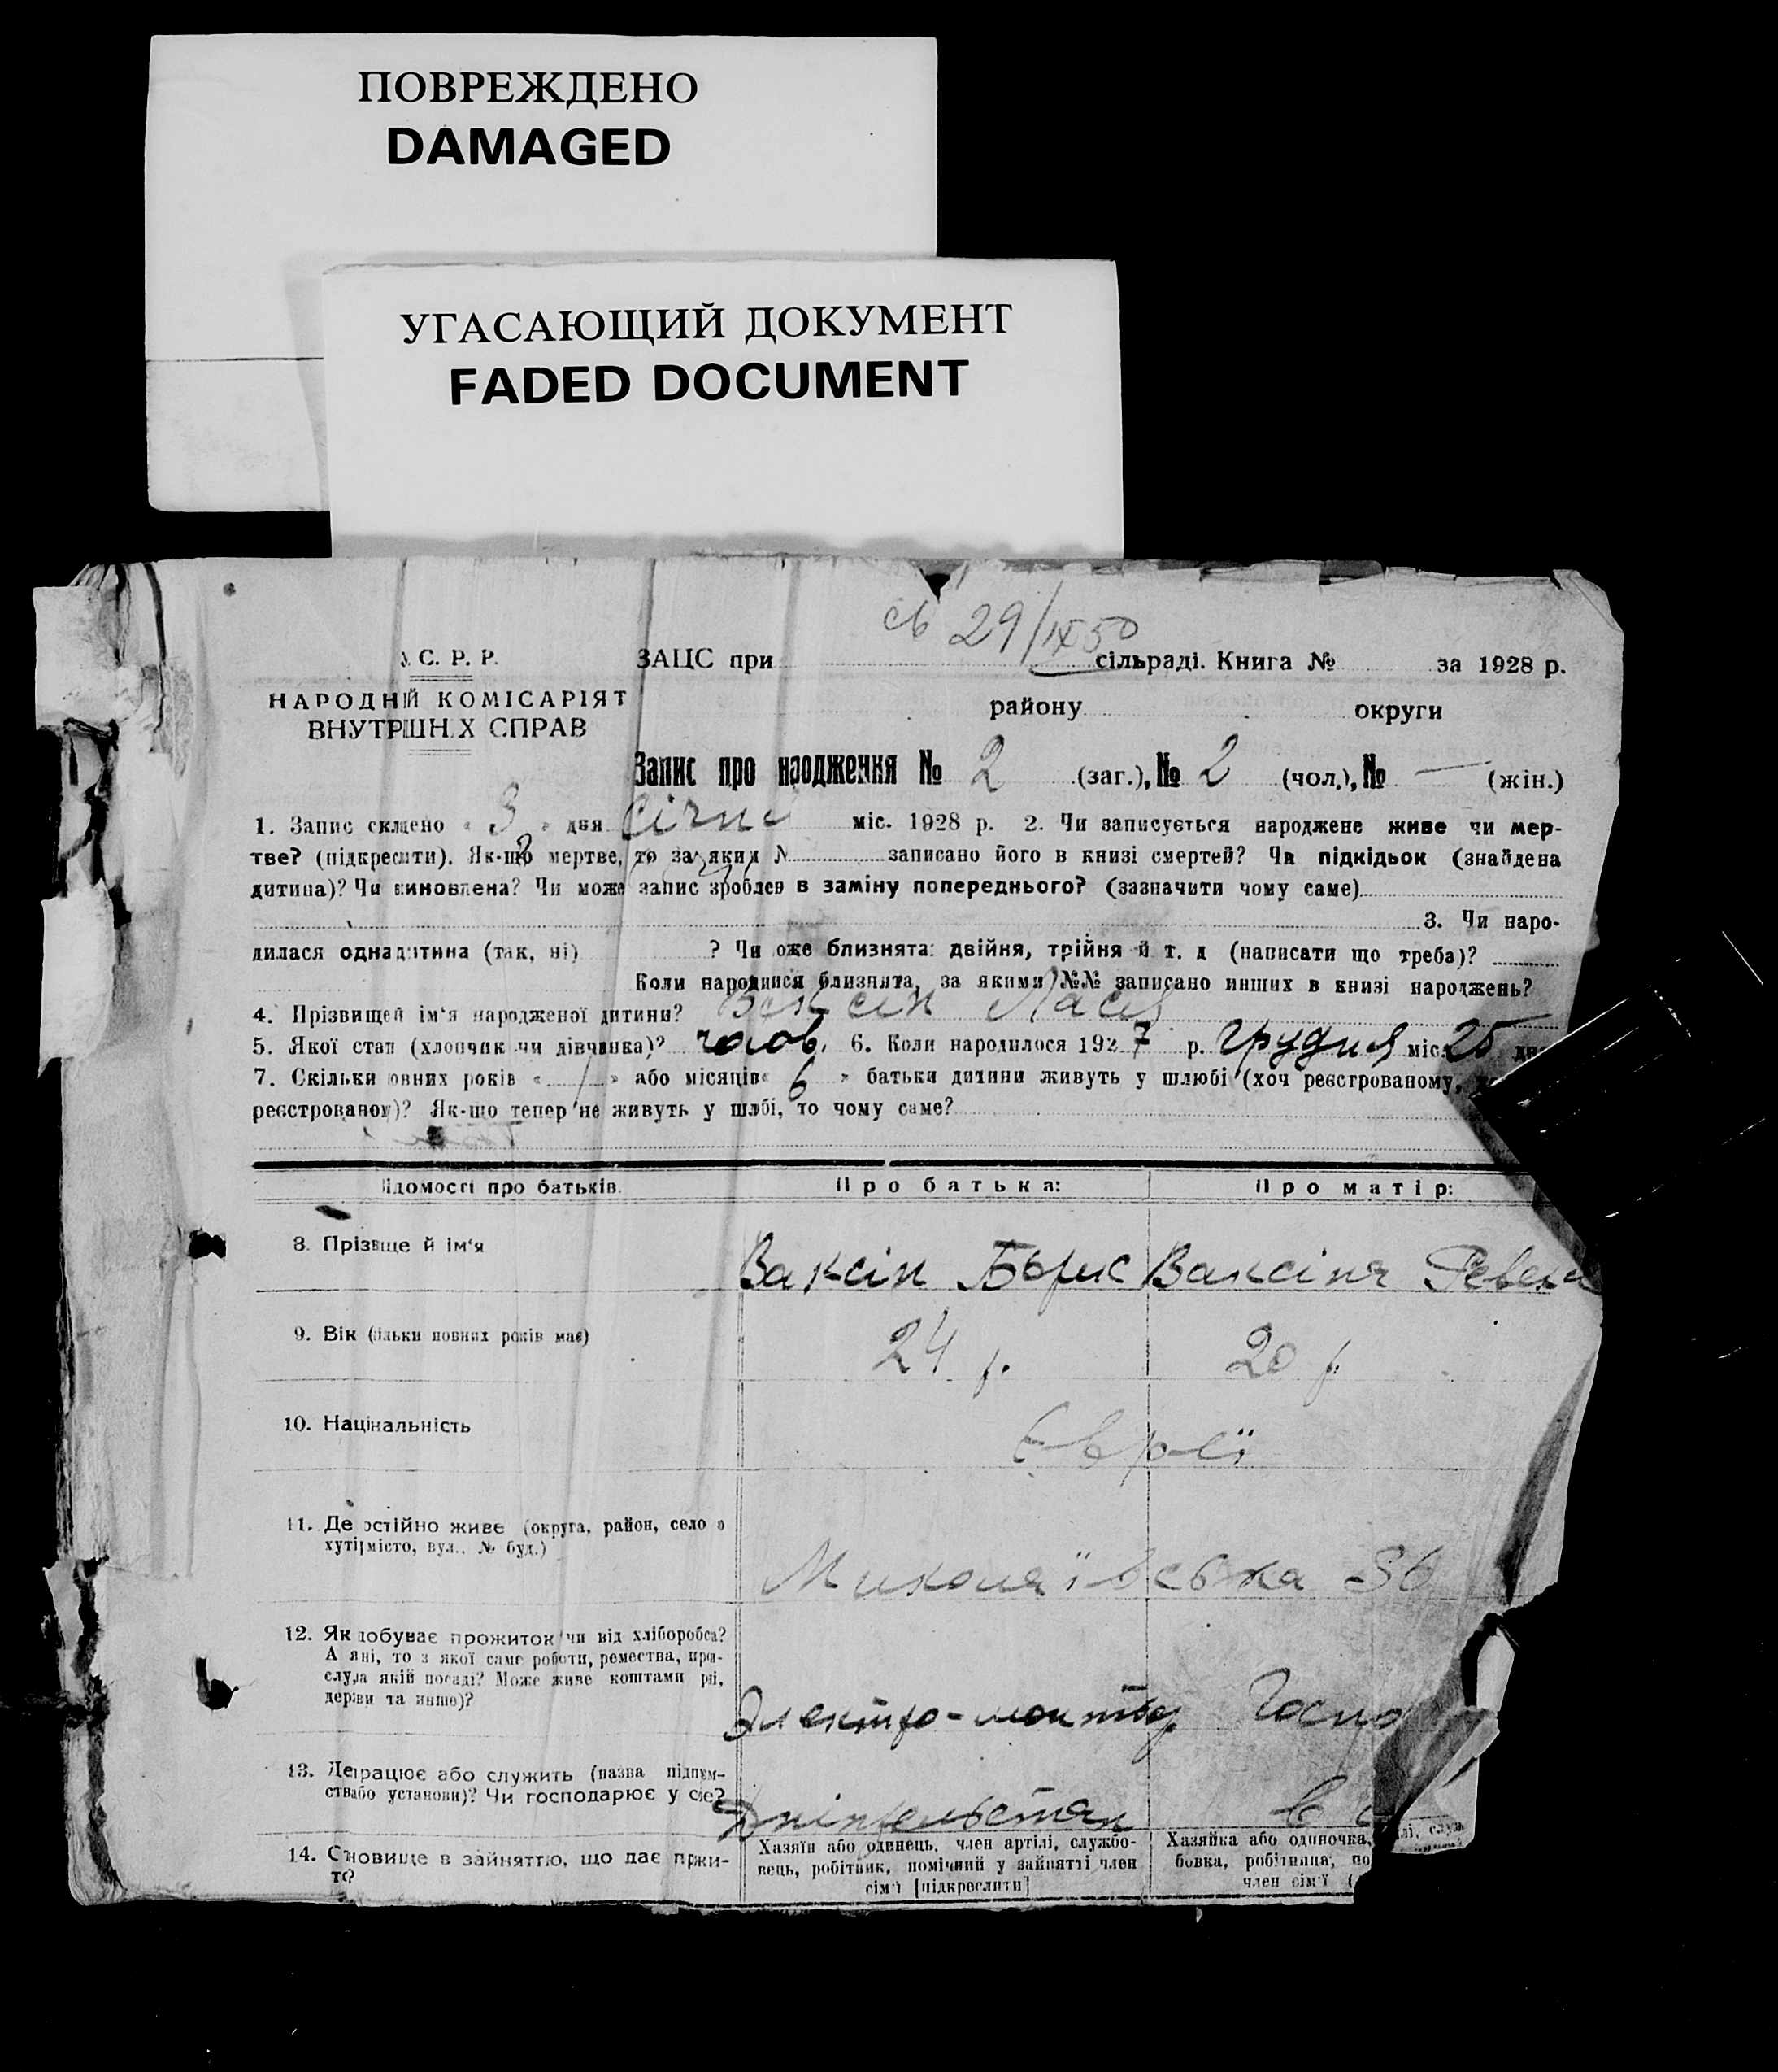 ПОВРЕЖДЕНО
DAMAGED
УГАСАЮЩИЙ ДОКУМЕНТ
FADED DOCUMENT
29/IX 50
У. С. Р. Р.
НАРОДНІЙ КОМІСАРІЯТ
ВНУТРІШН.Х СПРАВ
ЗАЦС при сільраді. Книга № за 1928 р.
району округи
Запис про народження № 2 (заг.), № 2 (чол.), № — (жін.)
1. Запис складено « 3 » дня Січня міс. 1928 р. 2. Чи записується народжене живе чи мер-
тве? (підкреслити). Як-що мертве, то за яким № записано його в книзі смертей? Чи підкідьок (знайдена
дитина)? Чи виновлена? Чи може запис зроблен в заміну попереднього? (зазначити чому саме)
3. Чи наро-
дилася одна дитина (так, ні) ? Чи може близнята: двійня, трійня й т. д (написати що треба)?
Коли народилися близнята, за якими №№ записано инших в книзі народжень?
4. Прізвище й ім'я народженої дитини? Ваксін
5. Якої стати (хлопчик чи дівчинка)? чолов. 6. Коли народилося 1927 р. грудня міс. 25 дня
7. Скільки повних років « / » або місяців « 6 » батьки дитини живуть у шлюбі (хоч реєстрованому,
реєстрованому)? Як-що тепер не живуть у шлюбі, то чому саме?
Відомості про батьків. Про батька: Про матір:
8. Прізвище й ім'я Ваксін Борис Ваксіна Ревека
9. Вік (скільки повних років має) 24 р. 20 р.
10. Національність Євреї
11. Де постійно живе (округа, район, село
хутір, місто, вул., № буд.) Миколаївська 36
12. Як добуває прожиток чи від хліборобса?
А як ні, то з якої саме роботи, ремества, про-
слу, на якій посаді? Може живе коштами
держави та инше)? Электро-монтер Госпо
13. Де працює або служить (назва підприєм-
ства або установи)? Чи господарює у себе? в
14. Становище в зайняттю, що дає прожи-
ток?
Хазяїн або одинець, член артілі, службо-
вець, робітник, помічний у зайнятті член
сім'ї [підкреслити]
Хазяйка або одиночка,
бовка, робітниця, по
член сім'ї (